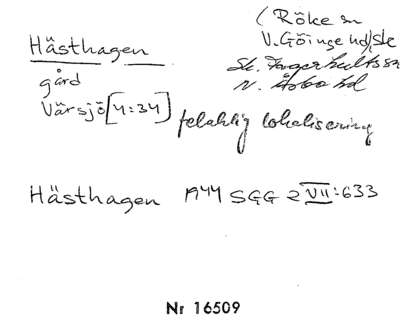 Hästhagen
gård
Värsjö [4:34]
(Röke sn
V. Göinge hd, Sk
Sk. Fagerhults sn
N. Åsbo hd
felaktig lokalisering
Hästhagen 1944 SGG 2 VII:633
Nr 16509